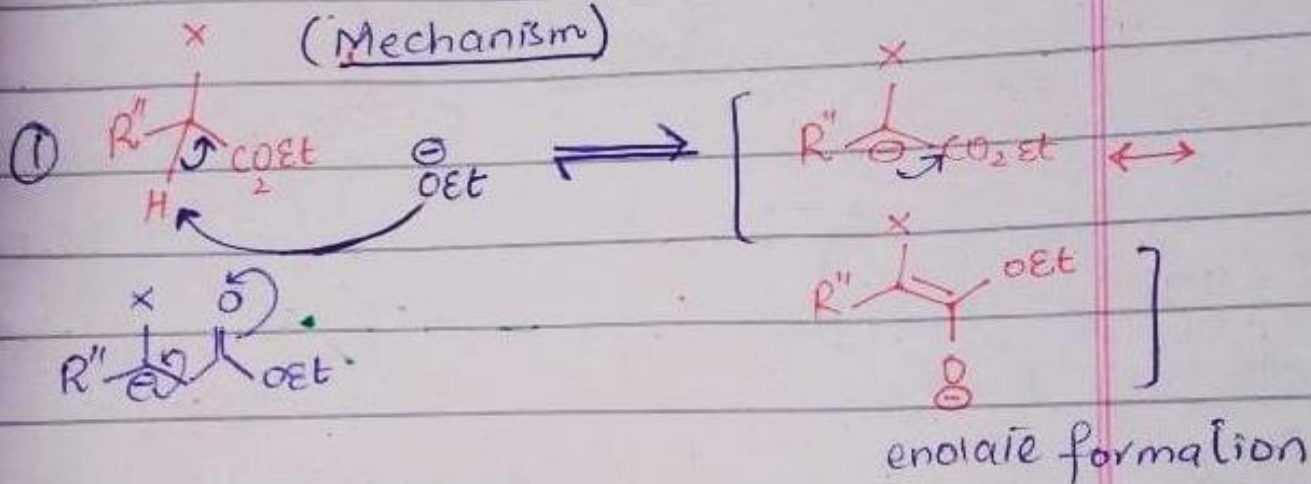 (Mechanism)
① R" X CO2Et H ⊖OEt ⇌ [ R" X ⊖ CO2Et ↔
R" X ⊖ O OEt
R" X OEt O⊖ ]
enolate formation